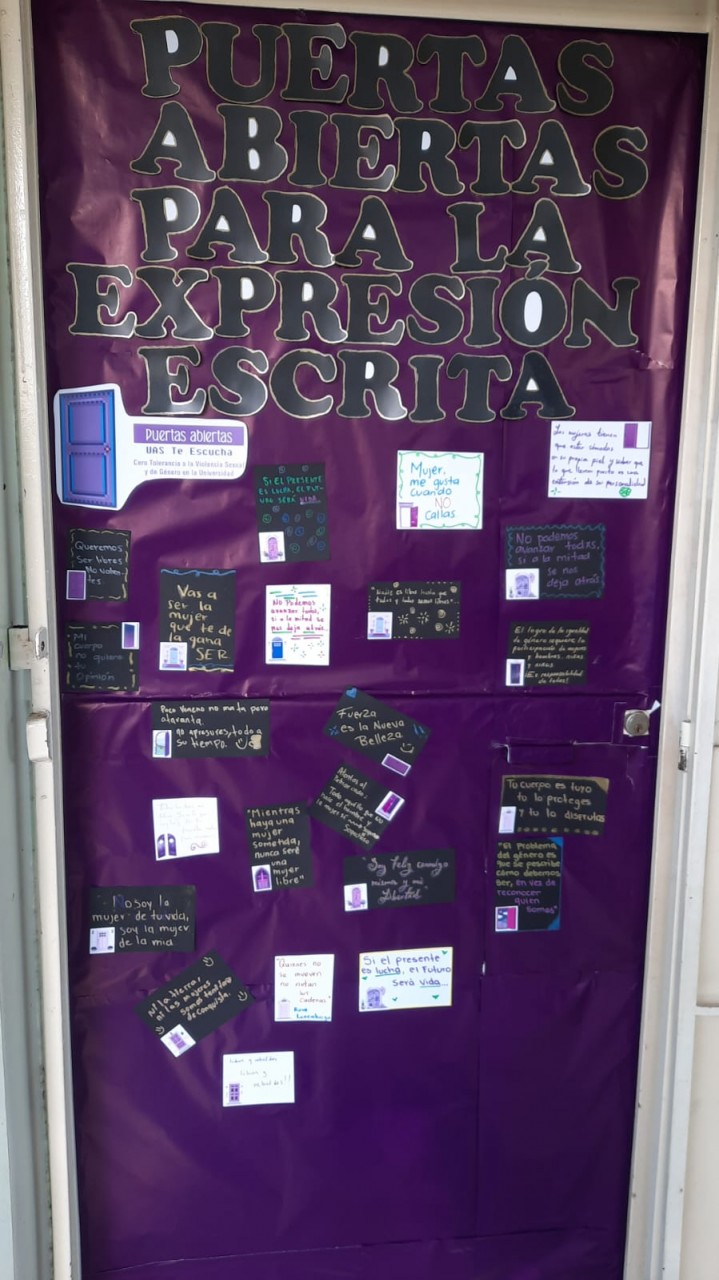 PUERTAS
ABIERTAS
PARA LA
EXPRESIÓN
ESCRITA
Puertas abiertas
UAS Te Escucha
Cero Tolerancia a la Violencia Sexual
y de Género en la Universidad
Las mujeres tienen
que estar cómodas
en su propia piel y saber que
lo que llevan puesto es una
extensión de su personalidad
Mujer,
me gusta
cuando
NO
Callas.
SI EL PRESENTE
ES LUCHA, EL FU-
TURO SERÁ VIDA
Queremos
Ser libres
No valien-
tes
No podemos
avanzar todxs,
si a la mitad
se nos
deja atrás
Vas a
ser la
mujer
que te de
la gana
SER
No Podemos
avanzar todos,
si a la mitad se
nos deja atrás...
"Nadie es libre hasta que
todos y todas seamos libres".
mi
cuerpo
no quiere
tu
Opinión
El logro de la igualdad
de género requiere la
participación de mujeres
y hombres, niñas
y niños
¡Es responsabilidad
de todos!
Poco Veneno no mata pero
ataranta.
no apresures, todo a
su tiempo.
Fuerza
es la Nueva
Belleza
Tu cuerpo es tuyo
tu lo proteges
y tu lo disfrutas
"Mientras
haya una
mujer
sometida,
nunca seré
una
mujer
libre"
"Soy feliz conmigo
misma y mi
Libertad"
"El problema
del género es
que se prescribe
cómo debemos
ser, en vez de
reconocer
quien
somos"
No Soy la
mujer de tu vida,
soy la mujer
de la mia
Ni la tierra,
ni las mujeres
somos territorio
de conquista.
"Quienes no
se mueven
no notan
sus
cadenas"
Rosa
Luxemburgo
Si el presente
es lucha, el futuro
Será vida...
libres y
rebeldes!!